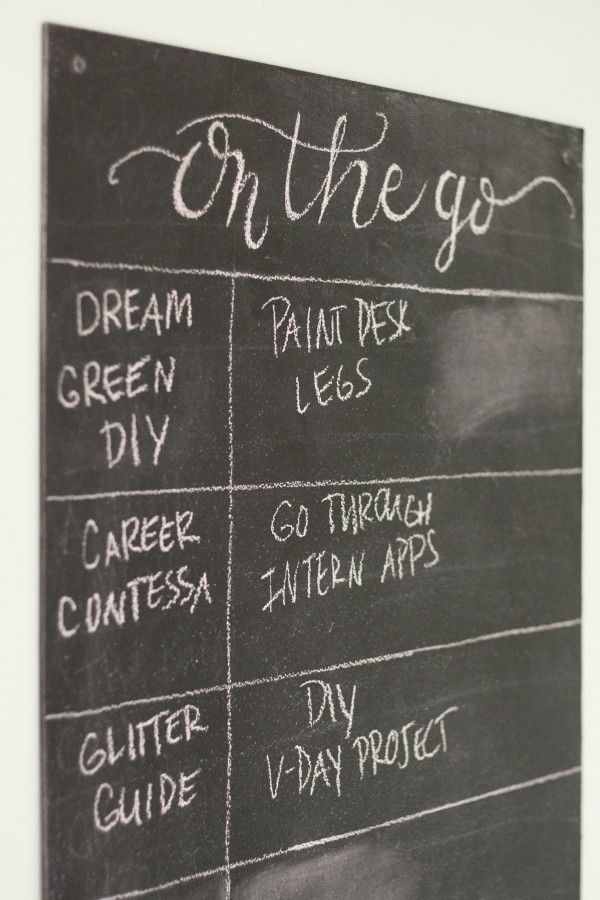 on the go
DREAM
GREEN
DIY
PAINT DESK
LEGS
CAREER
CONTESSA
GO THROUGH
INTERN APPS
GLITTER
GUIDE
DIY
V-DAY PROJECT